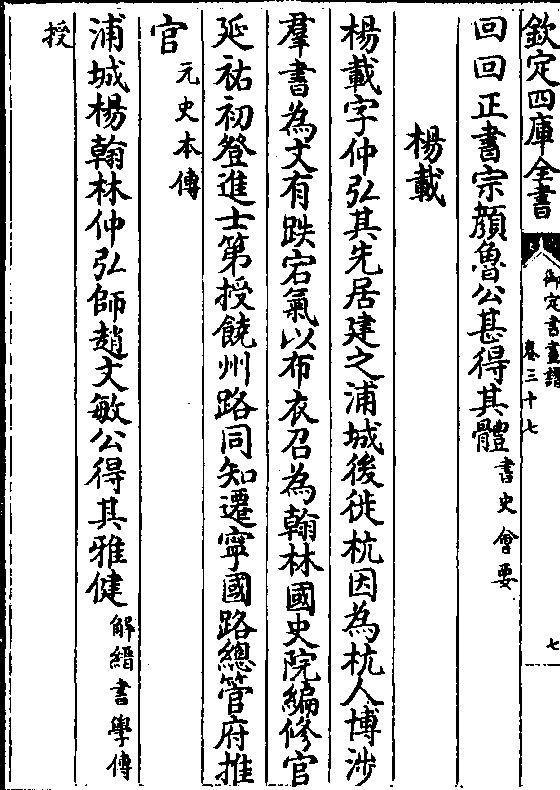 欽定四庫全書
御定書畫譜
卷三十七
七
回回正書宗顏魯公甚得其體書史會要
楊載
楊載字仲弘其先居建之浦城後徙杭因為杭人博涉
羣書為文有跌宕氣以布衣召為翰林國史院編修官
延祐初登進士第授饒州路同知遷寧國路總管府推
官元史本傳
浦城楊翰林仲弘師趙文敏公得其雅健解縉書學傳
授